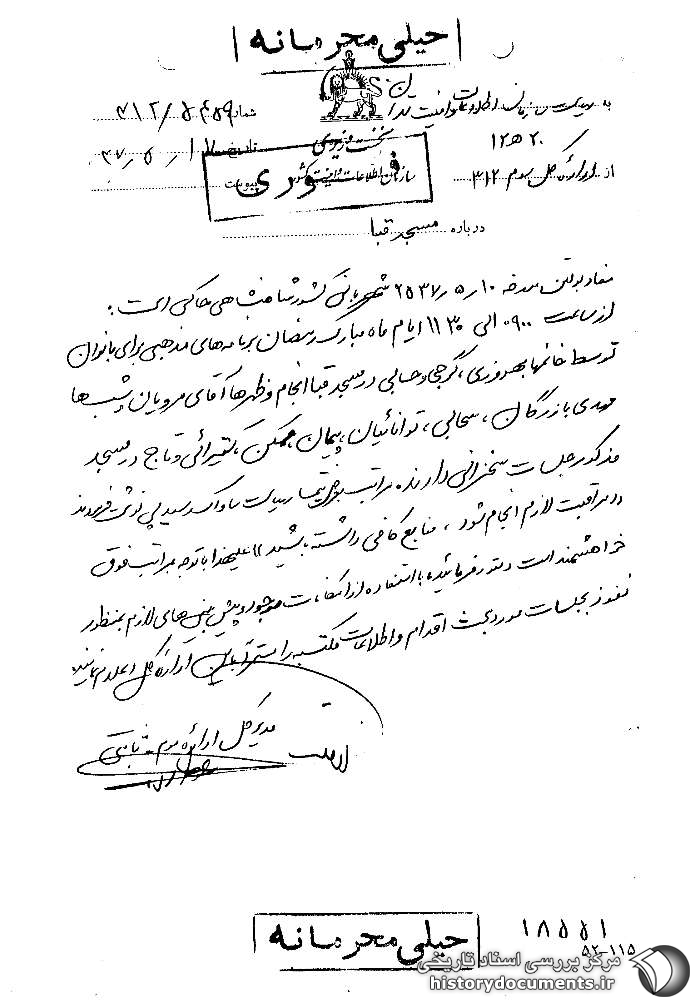 خیلی محرمانه
به ریاست سازمان اطلاعات و امنیت تهران
شماره ۳۱۲/۵۴۵۹
۲۰ ه ۱۲
نخست وزیری
تاریخ ۳۷/۵/۱۷
از اداره کل سوم ۳۱۲
سازمان اطلاعات و امنیت کشور
پیوست
فوری
درباره مسجد قبا
مفاد بولتن مورخه ۱۰/۵/۲۵۳۷ شهربانی کشور شاهنشاهی حاکی است:
از ساعت ۰۹۰۰ الی ۱۱۳۰ ایام ماه مبارک رمضان برنامه‌های مذهبی برای بانوان
توسط خانمها بهروزی، گرجی و حسابی در مسجد قبا انجام و ظهرها آقای مرویان و شب‌ها
مهدی بازرگان، سحابی، توانائیان، پیمان، ممکن، کتیرائی و تاج در مسجد
مذکور جلسات سخنرانی دارند مراتب بعرض تیمسار ریاست ساواک رسید پی نوشت فرمودند
در مراقبت لازم انجام شود، منابع کافی داشته باشید علیهذا با توجه بمراتب فوق
خواهشمند است دستور فرمائید با استفاده از امکانات موجود و پیش بینی‌های لازم بمنظور
نفوذ بجلسات مورد بحث اقدام و اطلاعات مکتسبه را مستمرا باین اداره کل اعلام نمایند
مدیر کل اداره سوم ثابتی
خیلی محرمانه
۱۸۵۵۱
۵۲-۱۱۵
مرکز بررسی اسناد تاریخی
historydocuments.ir